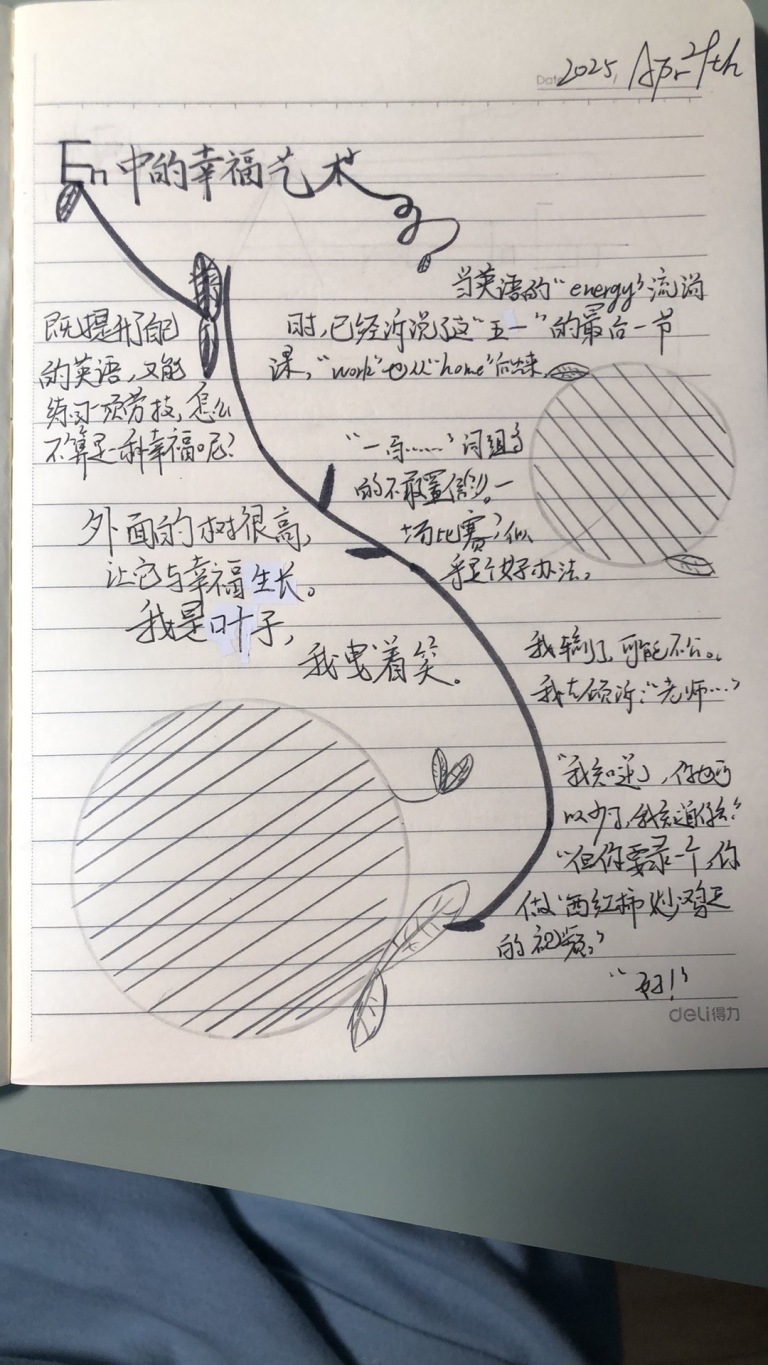 Date
2025, Apr 29th
En中的幸福艺术
当英语的“energy”流淌
时,已经诉说了这“五一”的最后一节
课,“work”也从“home”向出来
“一百……”词组
的不敢置信。一
场比赛?似
乎是个好办法。
我输了,可能不公。
我去倾诉:“老师…”
“我知道了,你也可
以少了,我知道你”
“但你要录一个,你
做‘西红柿炒鸡蛋’
的视频。”
“好!”
既提升了自己
的英语,又能
练习一项劳技,怎么
不算是一种幸福呢?
外面的树很高,
让它与幸福生长。
我是叶子,
我曳着笑。
deli得力